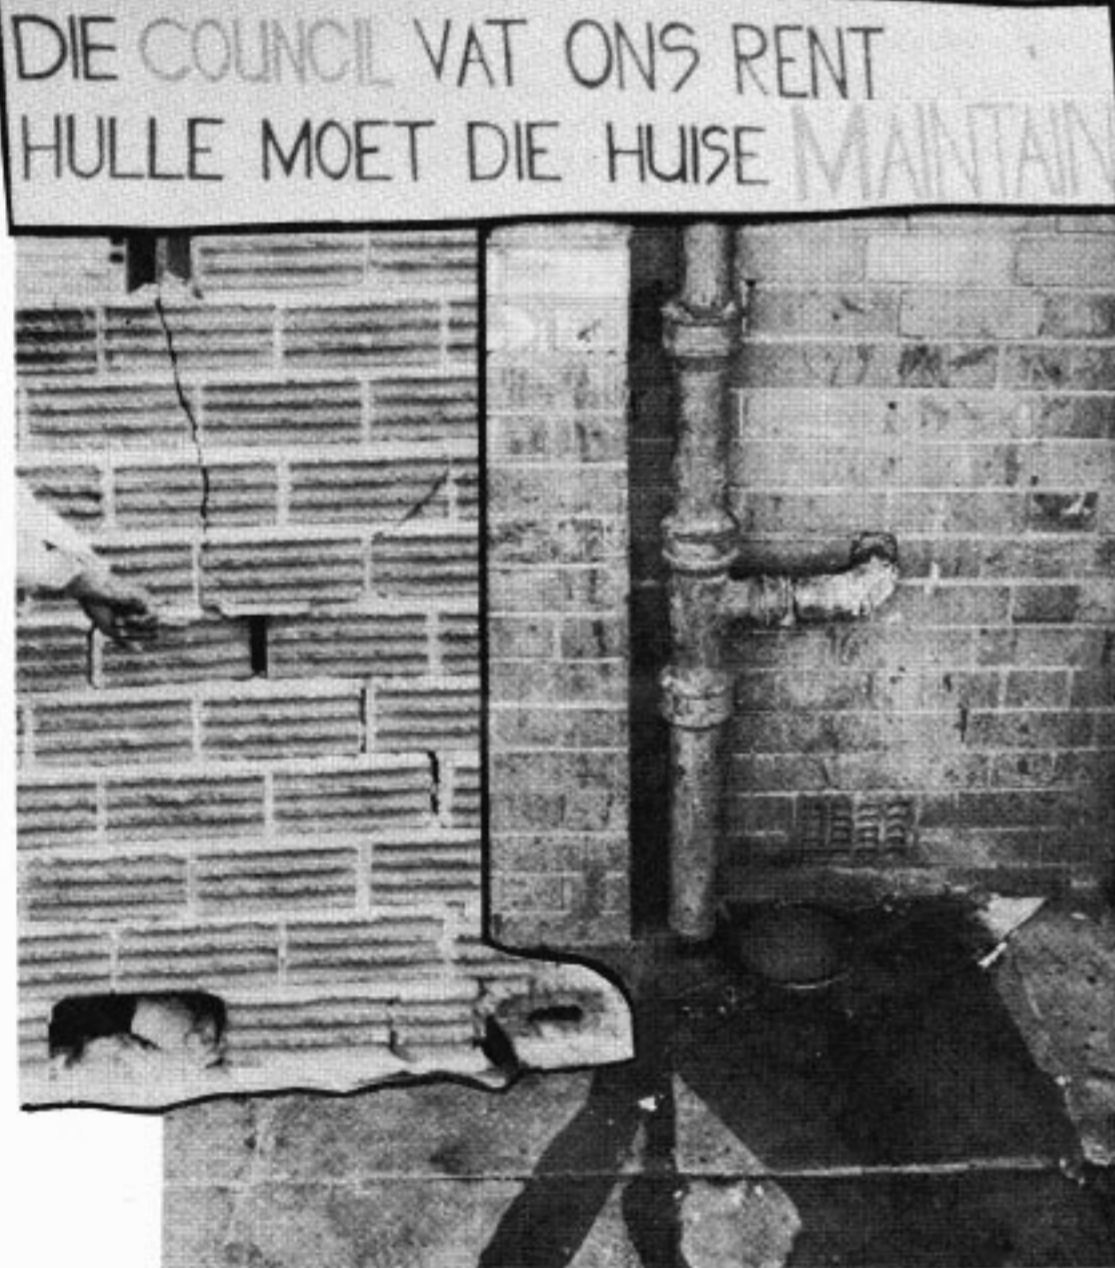 DIE COUNCIL VAT ONS RENT
HULLE MOET DIE HUISE MAINTAIN